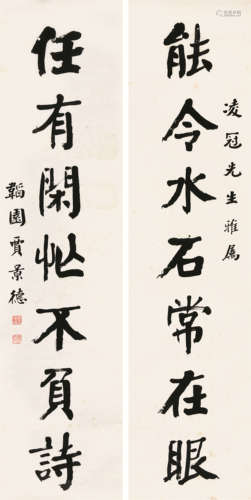 凌冠先生雅属
能令水石常在眼
任有閑忙不負詩
韜園賈景德